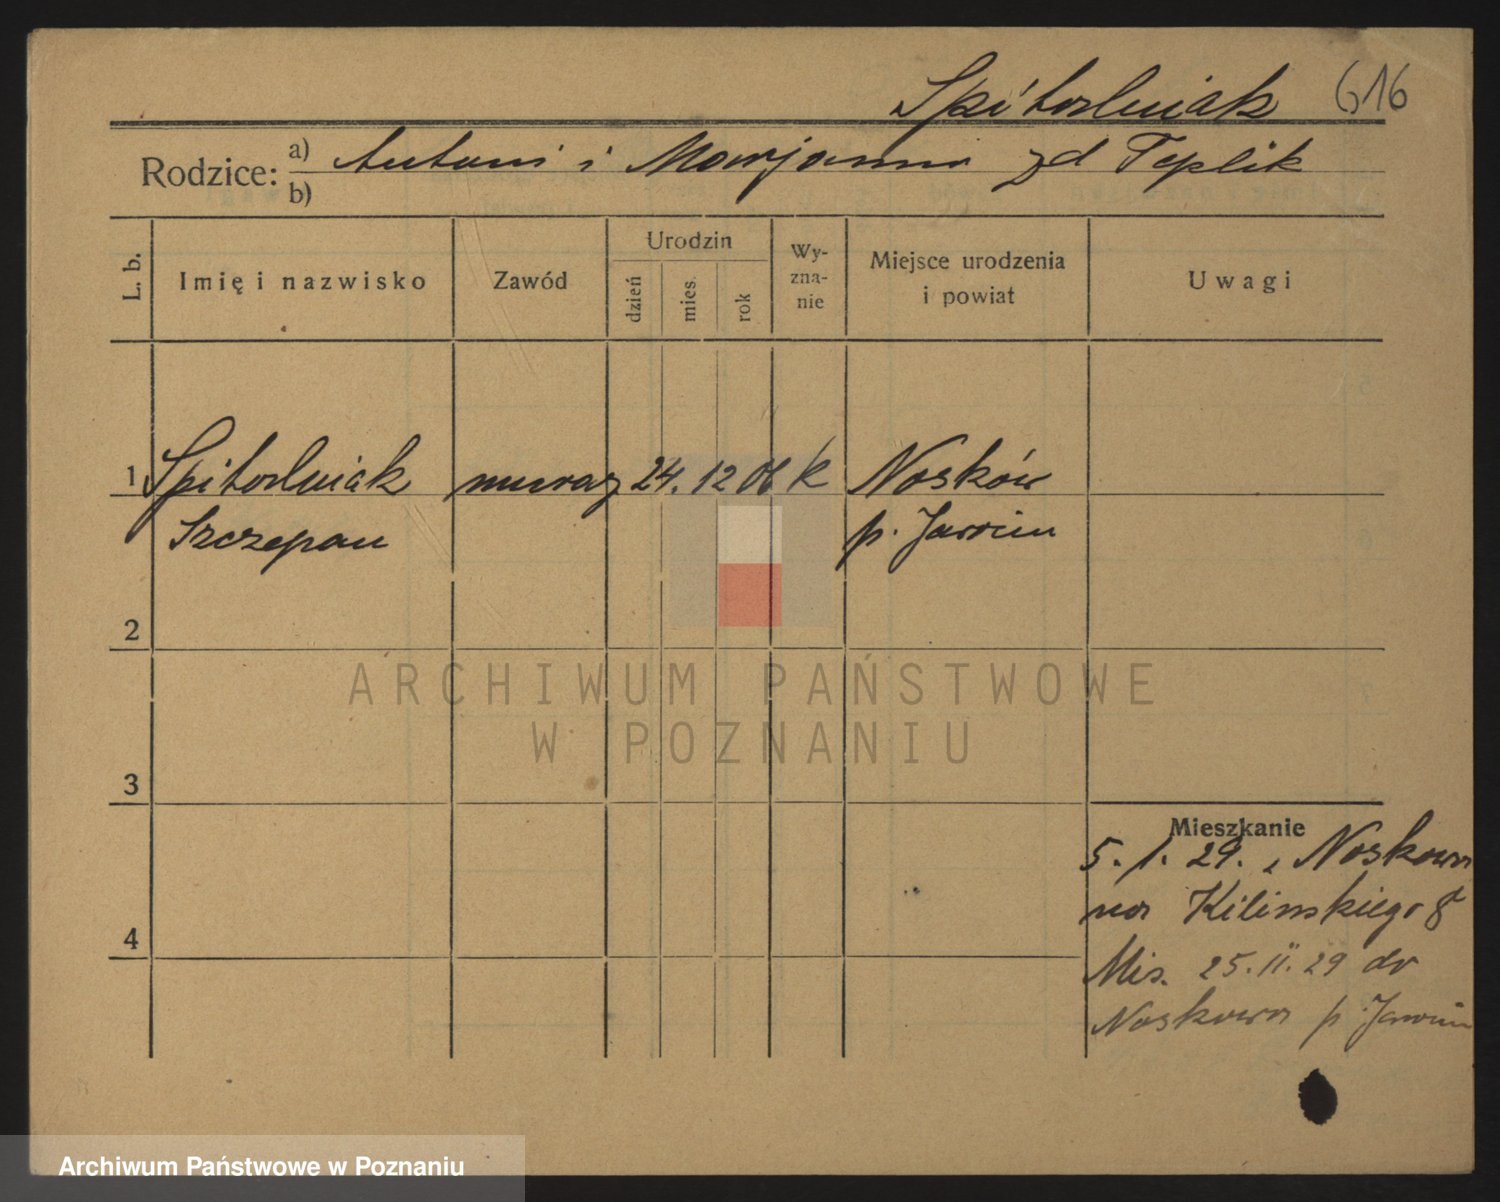 Spitorlniak 616
Rodzice: a) Antoni i Marjanna zd Teplik
b)
L. b. Imię i nazwisko Zawód Urodzin dzień mies. rok Wy-zna-nie Miejsce urodzenia i powiat Uwagi
1 Spitorlniak murarz 24. 12 06 k Nosków
Szczepan p. Jarocin
2
ARCHIWUM PAŃSTWOWE
W POZNANIU
3
Mieszkanie
5. 1. 29. z Noskowa
na Kilinskiego 8
4
25. II. 29 do
Noskowa p. Jarocin
Archiwum Państwowe w Poznaniu